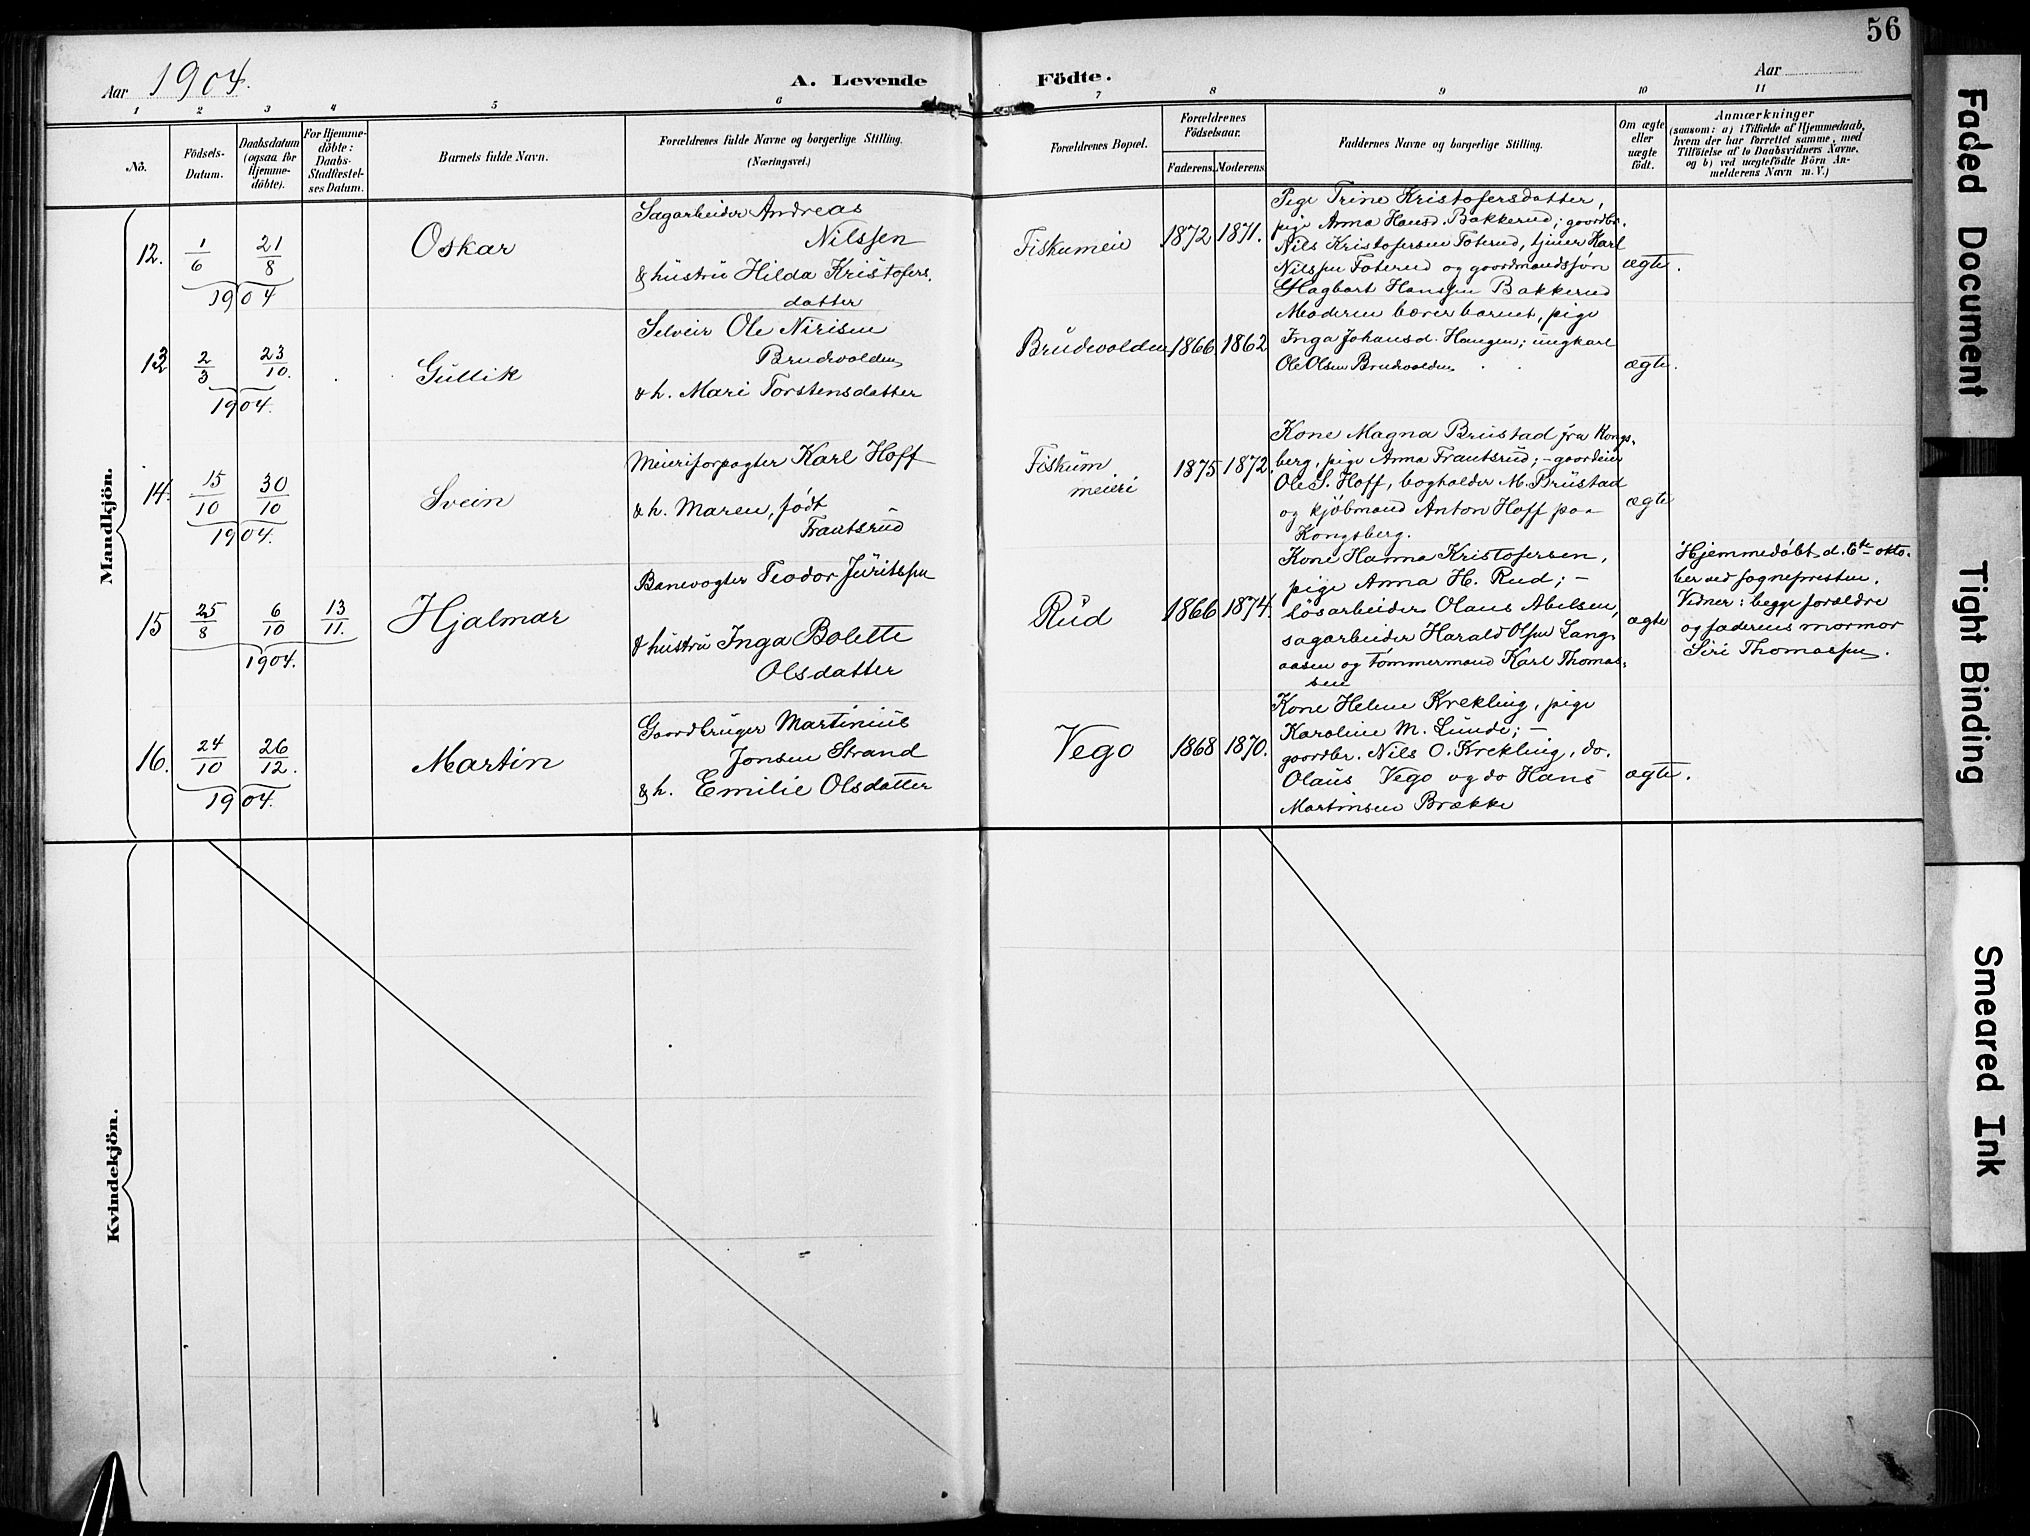 56
Aar 1904.
A. Levende Födte.
Aar
1 2 3 4 5 6 7 8 9 10 11
No.
Födsels-
Datum.
Daabsdatum
(ogsaa for
Hjemme-
döbte).
For Hjemme-
döbte:
Daabs-
Stadfæstel-
ses Datum.
Barnets fulde Navn.
Forældrenes fulde Navne og borgerlige Stilling.
(Næringsvei.)
Forældrenes Bopæl.
Forældrenes
Födselsaar.
Faderens.
Moderens.
Faddernes Navne og borgerlige Stilling.
Om ægte
eller
uægte
födt.
Anmærkninger
(saasom: a) i Tilfælde af Hjemmedaab,
hvem der har forrettet samme, med
Tilföielse af to Daabsvidners Navne,
og b) ved uægtefödte Börn An-
melderens Navn m. V.)
Mandkjön.
12.
1/6 21/8
1904
Oskar
Sagarbeider Andreas
Nilssen
& hustru Hilda Kristofers-
datter
Fiskumeie
1872 1871.
Pige Trine Kristofersdatter,
pige Anna Hansd. Bakkerud; gaardbr.
Nils Kristofersen Foterud, tjener Karl
Nilssen Foterud og gaardmandssøn
Hagbart Hanssen Bakkerud
ægte.
13
2/3 23/10.
1904.
Gullik
Selveier Ole Nirisen
Brudevolden
& h. Mari Torstensdatter
Brudevolden
1866 1862
Moderen bærer barnet, pige
Inga Johansd. Haugen; ungkarl
Ole Olsen Brudevolden
ægte.
14.
15/10 30/10
1904.
Svein
Meieriforpagter Karl Hoff
& h. Maren, født
Frantsrud
Fiskum
meieri
1875 1872.
Kone Magna Brustad fra Kongs-
berg, pige Anna Frantsrud; - gaardeier
Ole S. Hoff, bogholder M. Brustad
og kjøbmand Anton Hoff paa
Kongsberg.
ægte
15
25/8 6/10 13/11.
1904.
Hjalmar
Banevogter Teodor Juritssen
& hustru Inga Bolette
Olsdatter
Rud
1866 1874.
Kone Hanna Kristofersen,
pige Anna H. Rud; -
løsarbeider Olaus Abelsen,
sagarbeider Harald Olsen Lang-
aasen og tømmermand Karl Thomas-
sen
ægte
Hjemmedøbt d. 6te okto-
ber ved sognepresten.
Vidner: begge forældre
og faderens mormor
Siri Thomassen.
16.
24/10 26/12.
1904.
Martin
Gaardbruger Martinius
Jonsen Strand
& h. Emilie Olsdatter
Vego
1868 1870.
Kone Helene Krekling, pige
Karoline M. Lunde; -
gaardbr. Nils O. Krekling, do.
Olaus Vego og do Hans
Martinsen Brække
ægte.
Kvindekjön.
Faded Document
Tight Binding
Smeared Ink